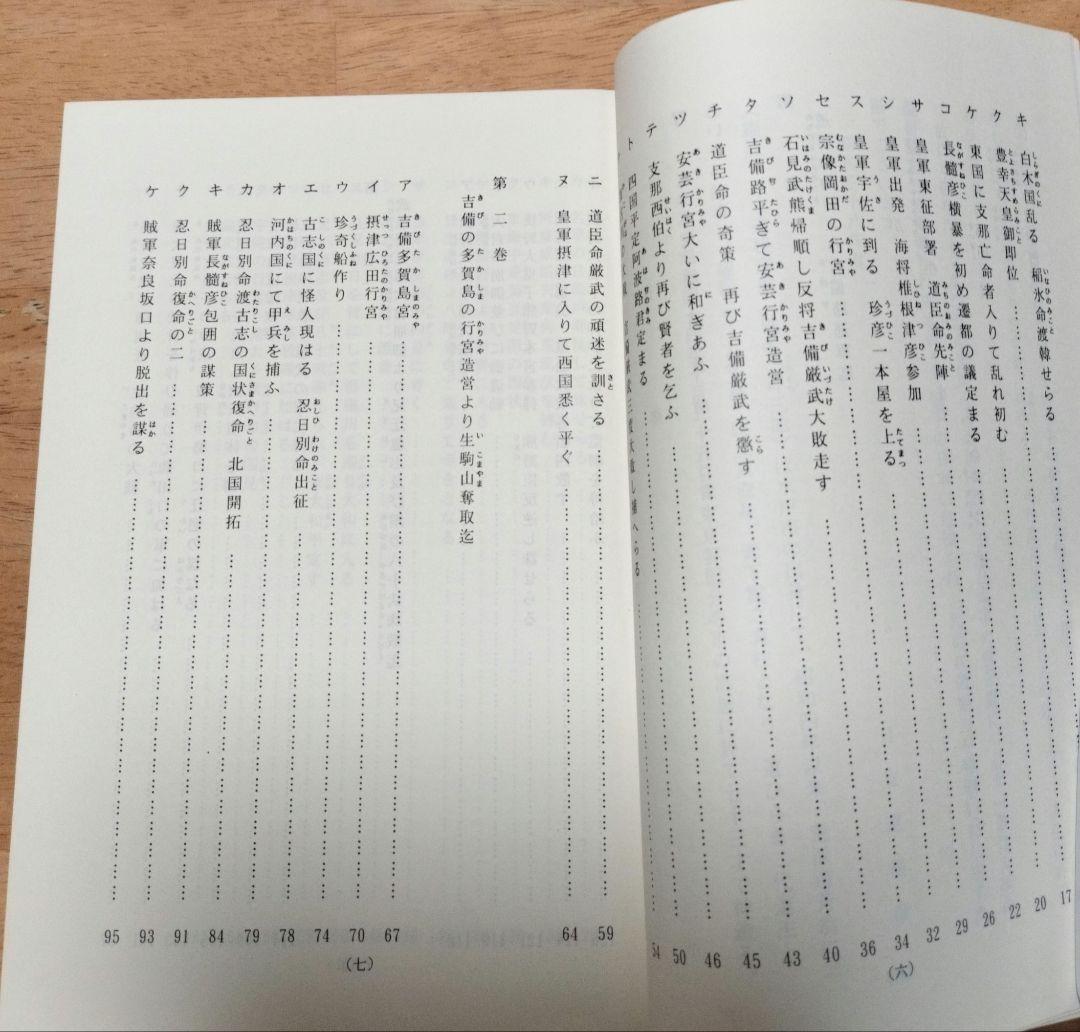 キ 白木国乱る 稲氷命渡韓せらる……17
ク 豊幸天皇御即位……20
ケ 東国に支那亡命者入りて乱れ初む……22
コ 長髄彦横暴を初め遷都の議定まる……26
サ 皇軍東征部署 道臣命先陣……29
シ 皇軍出発 海将椎根津彦参加……32
ス 皇軍宇佐に到る 珍彦一本屋を上る……34
セ 宗像岡田の行宮……36
ソ 石見武熊帰順し反将吉備厳武大敗走す……40
タ 吉備路平ぎて安芸行宮造営……43
チ 道臣命の奇策 再び吉備厳武を懲す……45
ツ 安芸行宮大いに和ぎあふ……46
テ 支那西伯より再び賢者を乞ふ……50
ト 四国平定阿波路君定まる……54
三度大敗し捕へらる……
(六)
ニ 道臣命厳武の頑迷を訓さる……59
ヌ 皇軍摂津に入りて西国悉く平ぐ……64
第二巻
吉備の多賀島の行宮造営より生駒山奪取迄
ア 吉備多賀島宮……67
イ 摂津広田行宮……70
ウ 珍奇船作り……74
エ 古志国に怪人現はる 忍日別命出征……78
オ 河内国にて甲兵を捕ふ……79
カ 忍日別命渡古志の国状復命 北国開拓……84
キ 賊軍長髄彦包囲の謀策……91
ク 忍日別命復命の二……93
ケ 賊軍奈良坂口より脱出を謀る……95
(七)